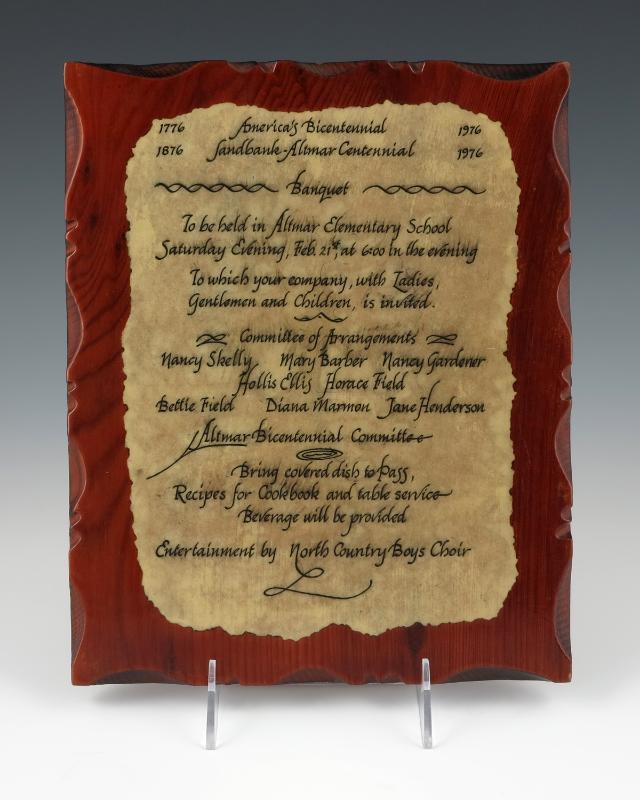 1776 America's Bicentennial 1976
1876 Sandbank-Altmar Centennial 1976
Banquet
To be held in Altmar Elementary School
Saturday Evening, Feb. 21st, at 6:00 in the evening
To which your company, with Ladies,
Gentlemen and Children, is invited.
Committee of Arrangements
Nancy Skelly Mary Barber Nancy Gardener
Hollis Ellis Horace Field
Bettie Field Diana Marmon Jane Henderson
Altmar Bicentennial Committee
Bring covered dish to pass,
Recipes for Cookbook and table service
Beverage will be provided
Entertainment by North Country Boys Choir